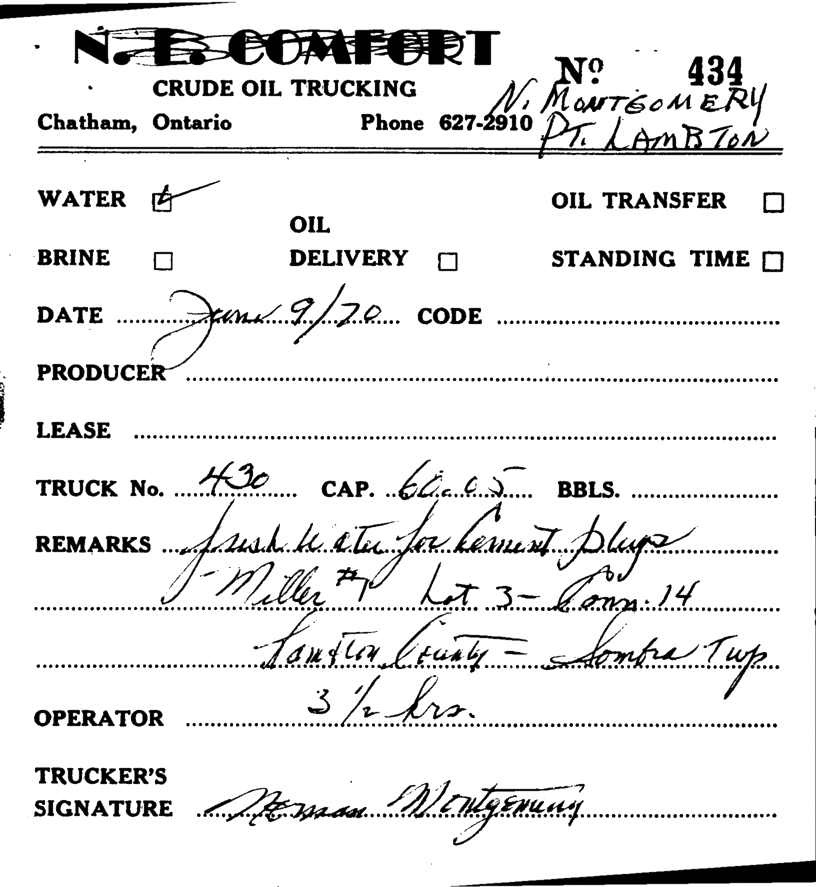 N. E. COMFORT
CRUDE OIL TRUCKING
Nº 434
N. MONTGOMERY
Chatham, Ontario Phone 627-2910
PT. LAMBTON
WATER OIL TRANSFER
OIL
BRINE DELIVERY STANDING TIME
DATE June 9/70 CODE
PRODUCER
LEASE
TRUCK No. 430 CAP. 60.05 BBLS.
REMARKS fresh Water for Cement plugs
- Miller #7 Lot 3 - Conn. 14
Lambton County - Sombra Twp
OPERATOR 3 1/2 hrs.
TRUCKER'S
SIGNATURE Norman Montgomery